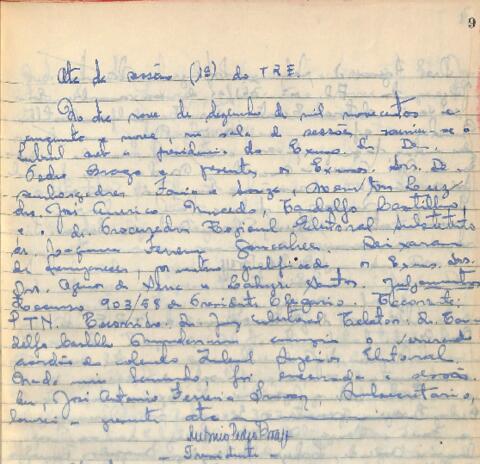 9
Ata da sessão (1ª) do T.R.E.
Ao dia nove de dezembro de mil novecentos e
cincoenta e nove, na sala de sessões, reuniu-se o
Tribunal sob a presidencia do Exmo. Sr. Des.
Pedro Braga e presentes os Exmos. Srs. De-
sembargadores Faria e Souza,
drs. José Americo Macedo, Tandolfo Castilho
e o dr. Procurador Regional Eleitoral Substituto
dr. Joaquim Ferreira Gonçalves. Deixaram
de comparecer, por motivo justificado os Exmos. Srs.
Drs. e Santos. Julgamentos
Recurso 902/58 de Presidente Olegario. Recorrente:
P.T.N. Recorrido: dr. Juiz eleitoral Relator: dr. Tan-
dolfo Castilho cumprir o venerando
acordão do colendo Tribunal Superior Eleitoral.
Nada mais havendo, foi encerrada a sessão.
Eu, José Antonio Ferreira, Subsecretario,
lavrei a presente ata
Antonio Pedro Braga
- Presidente -